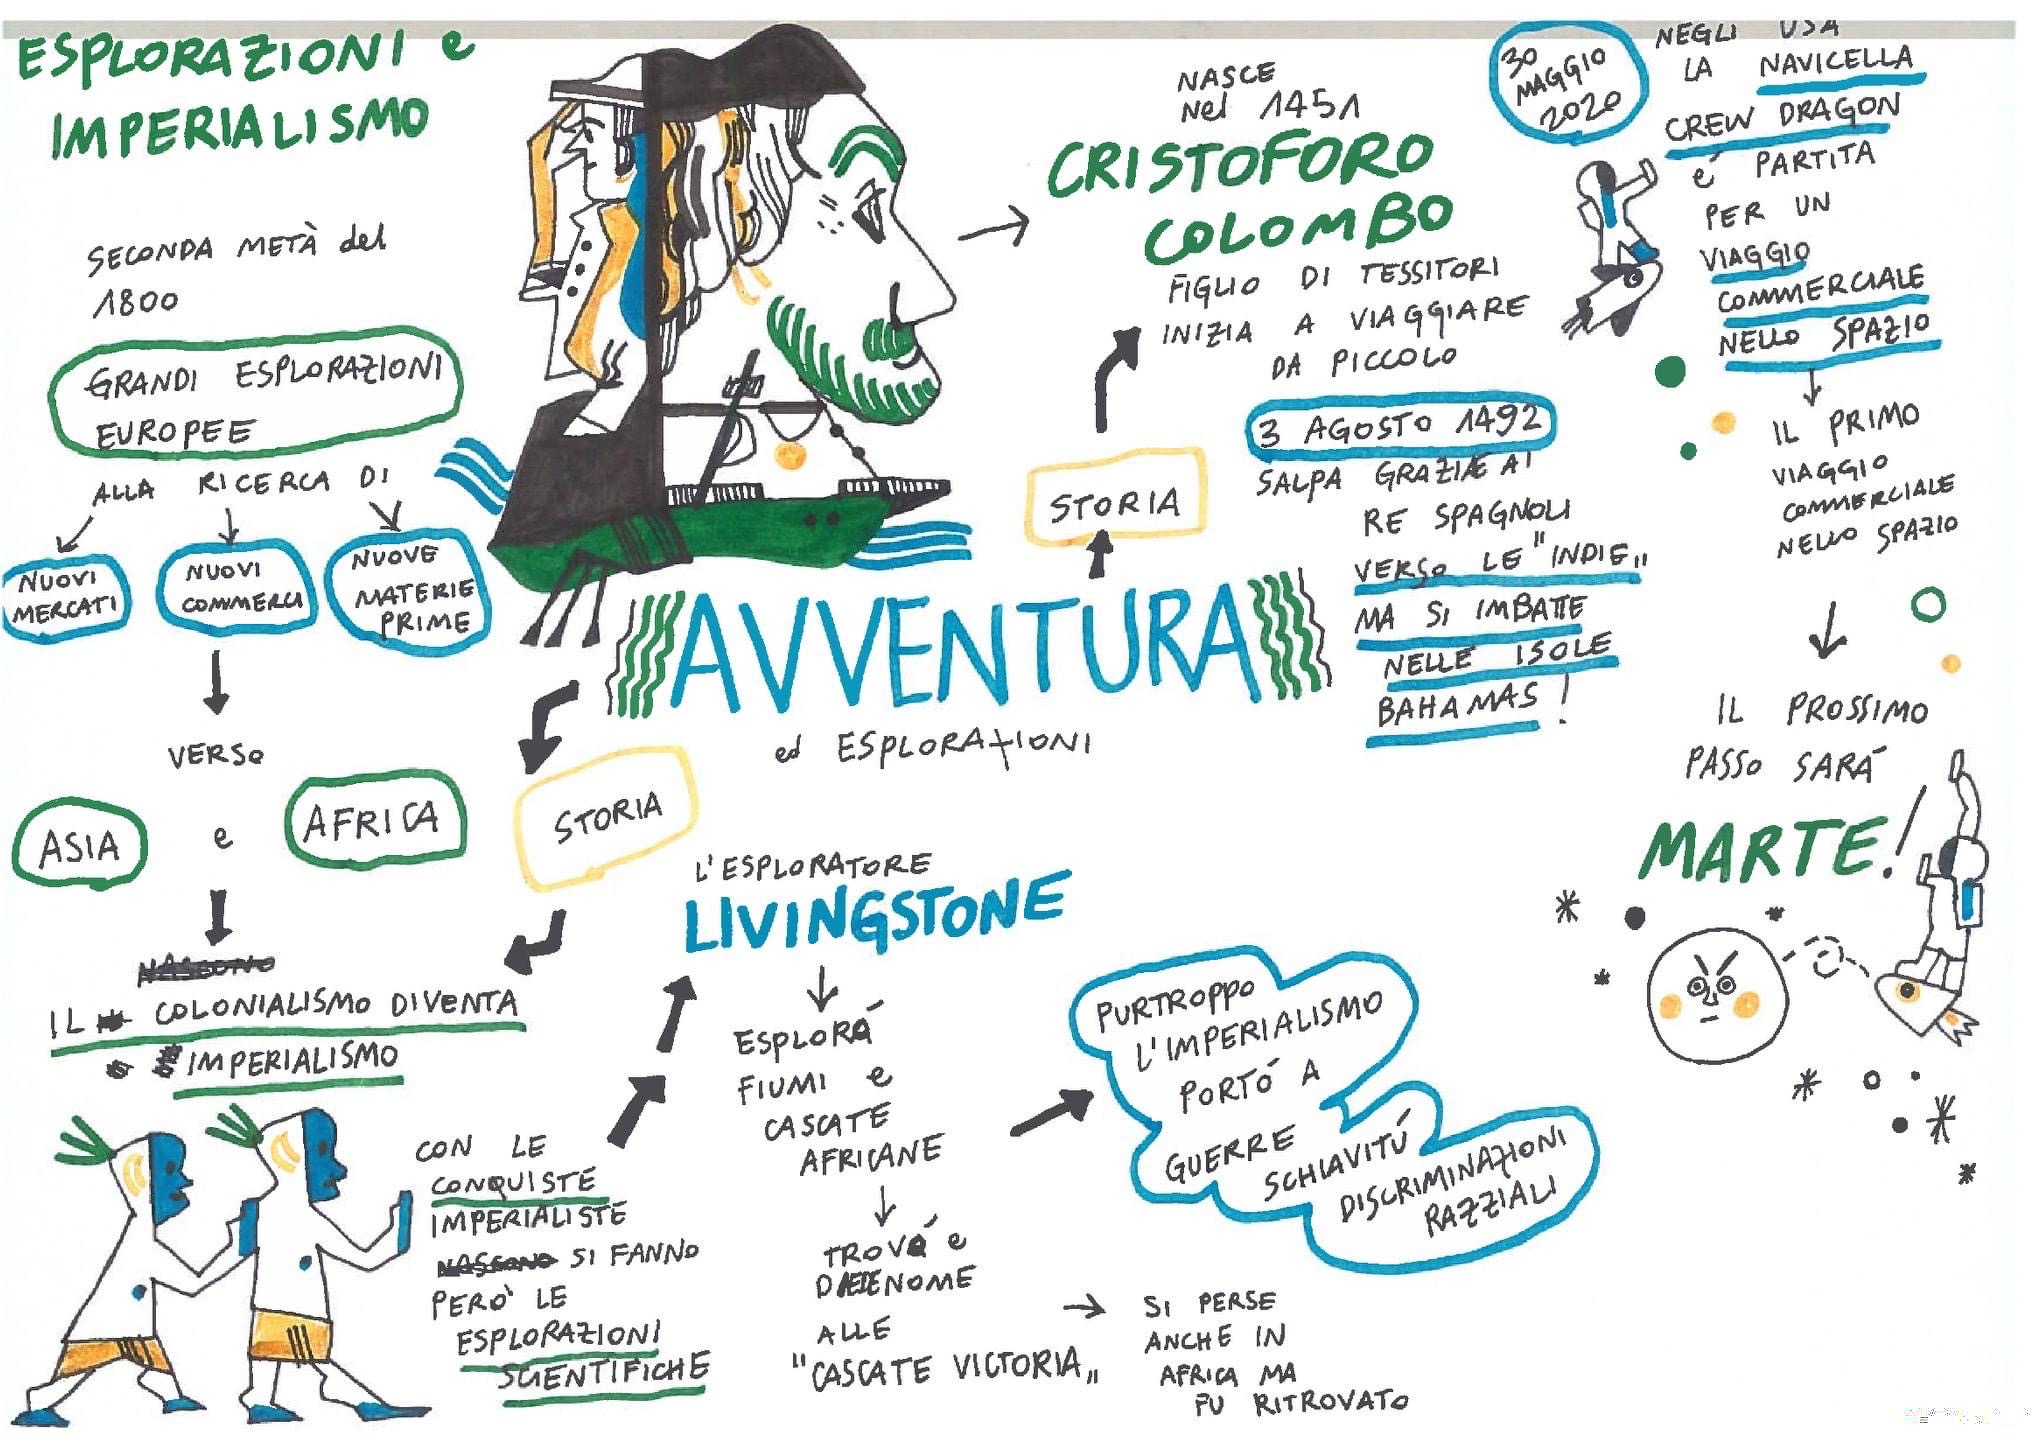 ESPLORAZIONI e
IMPERIALISMO
SECONDA METÀ del
1800
GRANDI ESPLORAZIONI
EUROPEE
ALLA RICERCA DI
NUOVI
MERCATI
NUOVI
COMMERCI
NUOVE
MATERIE
PRIME
VERSO
ASIA
e
AFRICA
IL COLONIALISMO DIVENTA
IMPERIALISMO
CON LE
CONQUISTE
IMPERIALISTE
NASCONO SI FANNO
PERO' LE
ESPLORAZIONI
SCIENTIFICHE
AVVENTURA
ed ESPLORAZIONI
STORIA
L'ESPLORATORE
LIVINGSTONE
ESPLORÁ
FIUMI e
CASCATE
AFRICANE
TROVÓ e
DIEDE NOME
ALLE
"CASCATE VICTORIA"
SI PERSE
ANCHE IN
AFRICA MA
FU RITROVATO
PURTROPPO
L'IMPERIALISMO
PORTÓ A
GUERRE
SCHIAVITÚ
DISCRIMINAZIONI
RAZZIALI
STORIA
NASCE
Nel 1451
CRISTOFORO
COLOMBO
FIGLIO DI TESSITORI
INIZIA A VIAGGIARE
DA PICCOLO
3 AGOSTO 1492
SALPA GRAZIE AI
RE SPAGNOLI
VERSO LE "INDIE"
MA SI IMBATTE
NELLE ISOLE
BAHAMAS!
30
MAGGIO
2020
NEGLI USA
LA NAVICELLA
CREW DRAGON
é PARTITA
PER UN
VIAGGIO
COMMERCIALE
NELLO SPAZIO
IL PRIMO
VIAGGIO
COMMERCIALE
NELLO SPAZIO
IL PROSSIMO
PASSO SARÁ
MARTE!